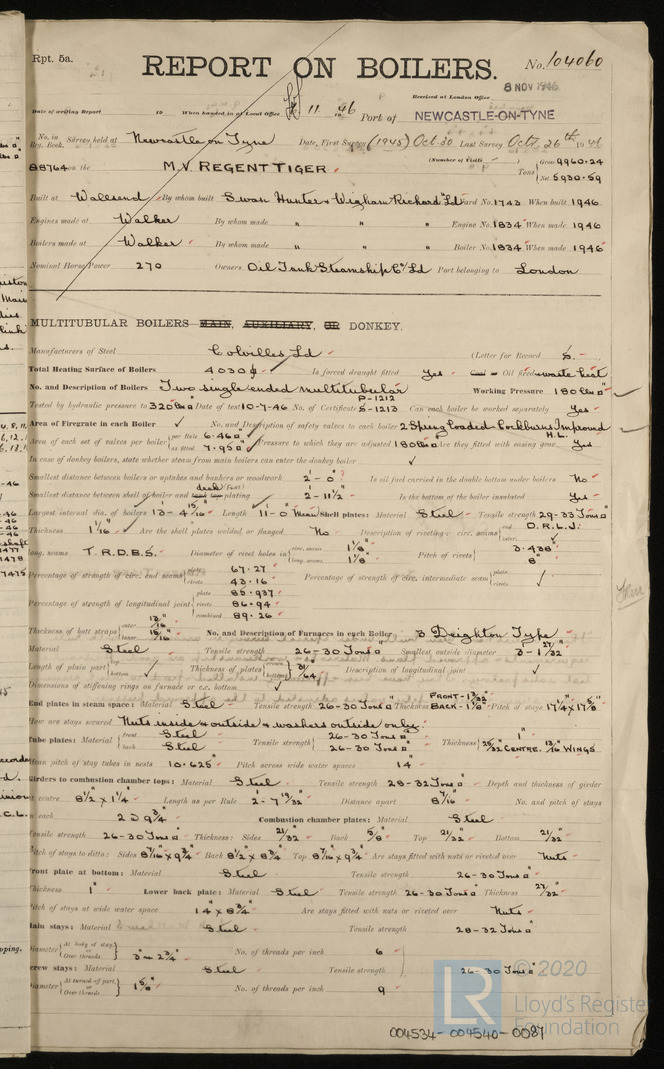 Rpt. 5a.
REPORT ON BOILERS.
No. 104060
8 NOV 1946
Received at London Office
Date of writing Report 19 When handed in at Local Office 11 1946 Port of NEWCASTLE-ON-TYNE
No. in Reg. Book. Survey held at Newcastle on Tyne Date, First Survey (1945) Oct. 30 Last Survey Octr 26th 1946
88764 on the M.V. REGENT TIGER. (Number of Visits ) Tons Gross 9960.24 Net 5930.59
Built at Wallsend By whom built Swan Hunter & Wigham Richard Ld Yard No. 1743 When built 1946
Engines made at Walker By whom made " " " Engine No. 1834 When made 1946
Boilers made at Walker By whom made " " " Boiler No. 1834 When made 1946
Nominal Horse Power 270 Owners Oil Tank Steamship Co Ld Port belonging to London
MULTITUBULAR BOILERS MAIN, AUXILIARY, OR DONKEY.
Manufacturers of Steel Colvilles Ld (Letter for Record S.)
Total Heating Surface of Boilers 4030 Is forced draught fitted Yes Coal or Oil fired waste heat
No. and Description of Boilers Two single ended multitubular Working Pressure 180 lbs
Tested by hydraulic pressure to 320 lbs Date of test 10-7-46 No. of Certificate P-1212 S-1213 Can each boiler be worked separately Yes
Area of Firegrate in each Boiler No. and Description of safety valves to each boiler 2 Spring loaded Cockburns Improved H.L.
Area of each set of valves per boiler per Rule 6.46 as fitted 7.95 Pressure to which they are adjusted 180 lbs Are they fitted with easing gear Yes
In case of donkey boilers, state whether steam from main boilers can enter the donkey boiler
Smallest distance between boilers or uptakes and bunkers or woodwork 2'-0" Is oil fuel carried in the double bottom under boilers No
Smallest distance between shell of boiler and tank top plating deck (flat) 2-11½" Is the bottom of the boiler insulated Yes
Largest internal dia. of boilers 13-4 15/16" Length 11-0" Shell plates: Material Steel Tensile strength 29-33 Tons
Thickness 1 1/16" Are the shell plates welded or flanged No Description of riveting: circ. seams end D.R.L.J. inter.
long. seams T.R.D.B.S. Diameter of rivet holes in circ. seams 1 1/8" long. seams 1 1/8" Pitch of rivets 3.438" 8"
Percentage of strength of circ. end seams plate 67.27 rivets 43.16 Percentage of strength of circ. intermediate seam plate rivets
Percentage of strength of longitudinal joint plate 85.937 rivets 86.94 combined 89.26
Thickness of butt straps outer 13/16" inner 15/16" No. and Description of Furnaces in each Boiler 3 Deighton Type
Material Steel Tensile strength 26-30 Tons Smallest outside diameter 3'-1 27/32"
Length of plain part top bottom Thickness of plates crown bottom 31/64" Description of longitudinal joint
Dimensions of stiffening rings on furnace or c.c. bottom
End plates in steam space: Material Steel Tensile strength 26-30 Tons Thickness FRONT-1 3/32" BACK-1 1/8" Pitch of stays 17¼ x 17 5/8"
How are stays secured Nuts inside & outside & washers outside only.
Tube plates: Material front Steel back Steel Tensile strength 26-30 Tons 26-30 Tons Thickness 1" 25/32 CENTRE. 13/16 WINGS.
Mean pitch of stay tubes in nests 10.625" Pitch across wide water spaces 14"
Girders to combustion chamber tops: Material Steel Tensile strength 28-32 Tons Depth and thickness of girder
at centre 8½" x 1¼" Length as per Rule 2-7 19/32" Distance apart 8 7/16" No. and pitch of stays
in each 2 @ 9¾" Combustion chamber plates: Material Steel
Tensile strength 26-30 Tons Thickness: Sides 21/32" Back 5/8" Top 21/32" Bottom 21/32"
Pitch of stays to ditto: Sides 8 7/16" x 9¾" Back 8½" x 8¾" Top 8 7/16" x 9¾" Are stays fitted with nuts or riveted over Nuts
Front plate at bottom: Material Steel Tensile strength 26-30 Tons
Thickness 1" Lower back plate: Material Steel Tensile strength 26-30 Tons Thickness 27/32"
Pitch of stays at wide water space 14" x 8¾" Are stays fitted with nuts or riveted over Nuts
Main stays: Material Steel Tensile strength 28-32 Tons
Diameter At body of stay, or Over threads 3" & 2¾" No. of threads per inch 6
Screw stays: Material Steel Tensile strength 26-30 Tons
Diameter At turned off part, or Over threads 1 5/8" No. of threads per inch 9
LR © 2020
Lloyd's Register
Foundation
004534-004540-0087